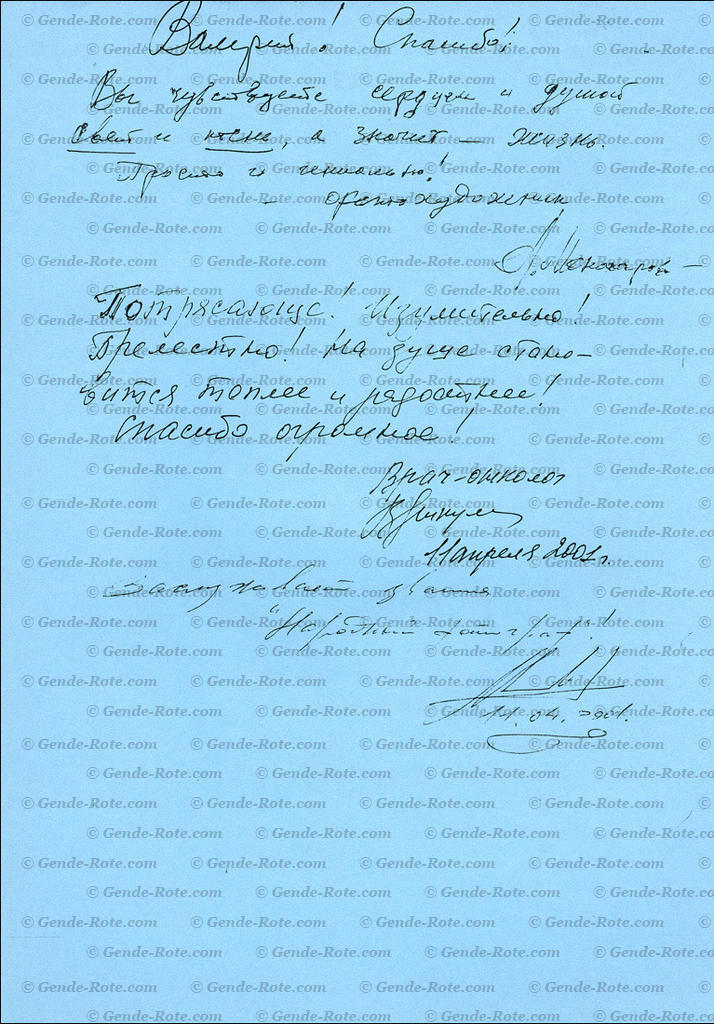 Валерий! Спасибо!
Вы чувствуете сердцем и душой
свет и тень, а значит — жизнь.
Просто и гениально!
— художник
Потрясающе! Изумительно!
Прелестно! На душе стано-
вится теплее и радостнее!
Спасибо огромное!
Врач-онколог
11 апреля 2001 г.
Заслуживает звания
"Народный фотограф"!
11.04.2001.
© Gende-Rote.com